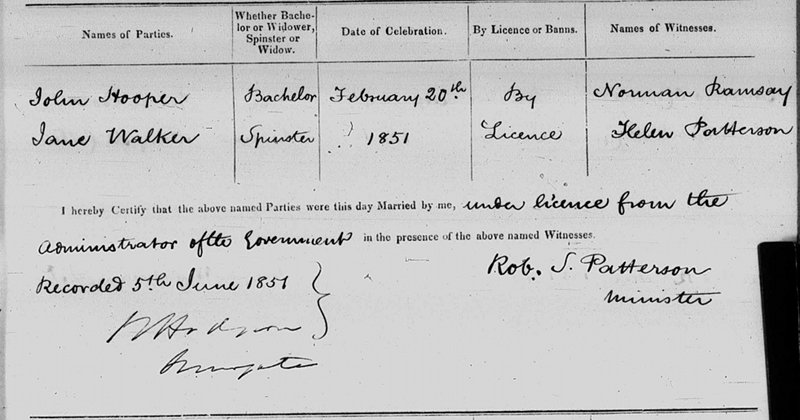 Names of Parties. Whether Bachelor or Widower, Spinster or Widow. Date of Celebration. By Licence or Banns. Names of Witnesses.
John Hooper Bachelor February 20th By Norman Ramsay
Jane Walker Spinster 1851 Licence Helen Patterson
I hereby Certify that the above named Parties were this day Married by me, under licence from the
Administrator of the Government in the presence of the above named Witnesses.
Rob. S. Patterson
Minister
Recorded 5th June 1851
Hodgson